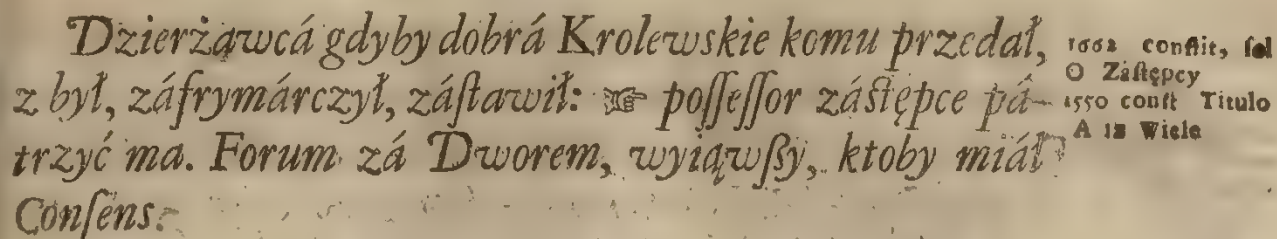 Dzierżąwcá gdyby dobrá Krolewskie komu przedał,
z był, záfrymárczył, záſtawił: ☞ poſſeſſor záſtępce pá-
trzyć ma. Forum zá Dworem, wyiąwſzy, ktoby miáł
Conſens.
1662 conſtit, fol
O Záſtępcy
1550 conſt Titulo
A iż Wiele